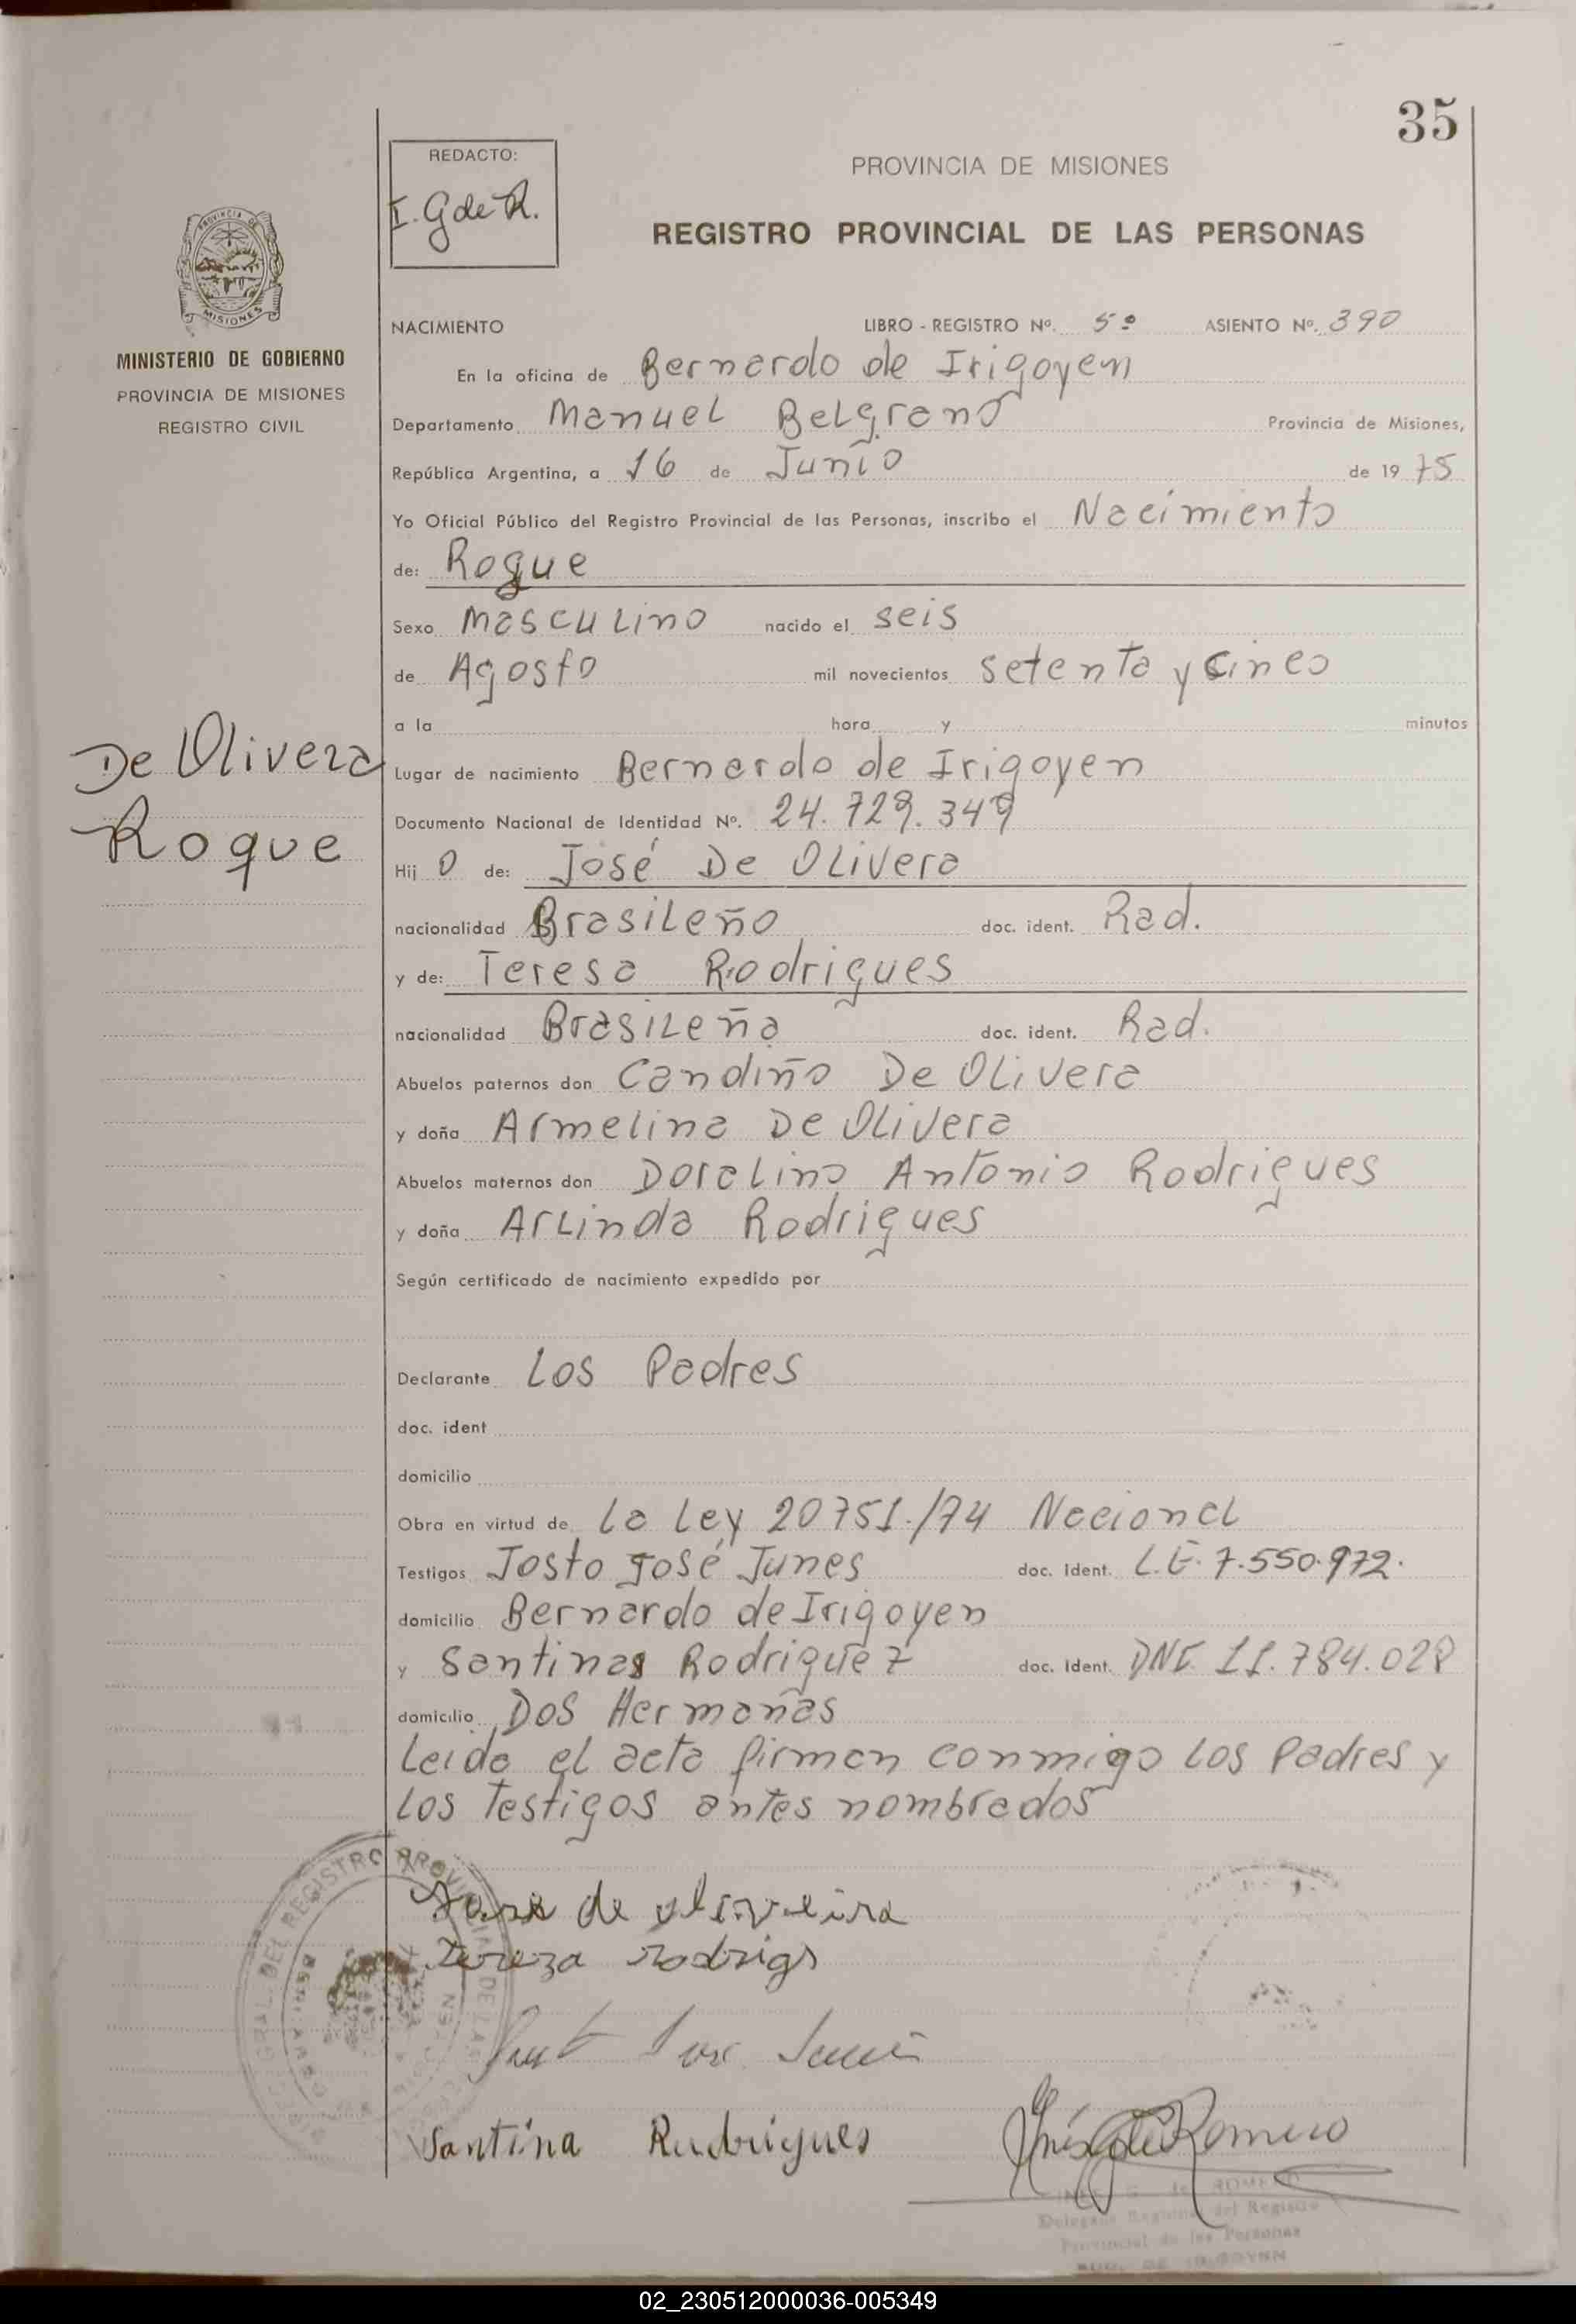 35
REDACTO:
I. G de R.
PROVINCIA DE MISIONES
REGISTRO PROVINCIAL DE LAS PERSONAS
PROVINCIA DE
MISIONES
MINISTERIO DE GOBIERNO
PROVINCIA DE MISIONES
REGISTRO CIVIL
NACIMIENTO LIBRO - REGISTRO Nº. 5º ASIENTO Nº. 390
En la oficina de Bernardo de Irigoyen
Departamento Manuel Belgrano Provincia de Misiones,
República Argentina, a 16 de Junio de 1975
Yo Oficial Público del Registro Provincial de las Personas, inscribo el Nacimiento
de: Roque
Sexo Masculino nacido el seis
de Agosto mil novecientos setenta y cinco
a la hora y minutos
De Olivera
Roque
Lugar de nacimiento Bernardo de Irigoyen
Documento Nacional de Identidad Nº. 24.729.349
Hijo de: José De Olivera
nacionalidad Brasileño doc. ident. Rad.
y de: Teresa Rodrigues
nacionalidad Brasileña doc. ident. Rad.
Abuelos paternos don Candiño De Olivera
y doña Armelina De Olivera
Abuelos maternos don Doralino Antonio Rodrigues
y doña Arlinda Rodrigues
Según certificado de nacimiento expedido por
Declarante Los Padres
doc. ident
domicilio
Obra en virtud de la Ley 20751./74 Nacional
Testigos Josto José Junes doc. Ident. L.E. 7.550.972.
domicilio Bernardo de Irigoyen
y Santinas Rodriguez doc. Ident. DNI. 11.784.028
domicilio Dos Hermañas
Leida el acta firman conmigo los Padres y
los Testigos antes nombrados
de oliveira
tereza rodrigs
Santina Rudrigues
Inés G de Romero
de ROMERO
del Registro
Provincial de las Personas
02_230512000036-005349